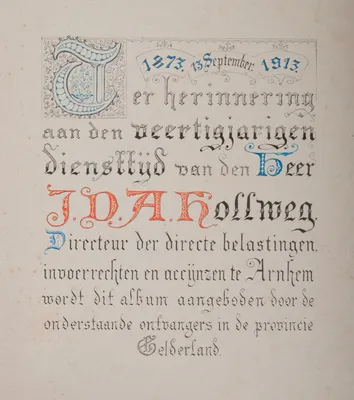 1873. 13 September. 1913.
Ter herinnering
aan den veertigjarigen
diensttijd van den Heer
J.D.A. Hollweg.
Directeur der directe belastingen,
invoerrechten en accijnzen te Arnhem
wordt dit album aangeboden door de
onderstaande ontvangers in de provincie
Gelderland.